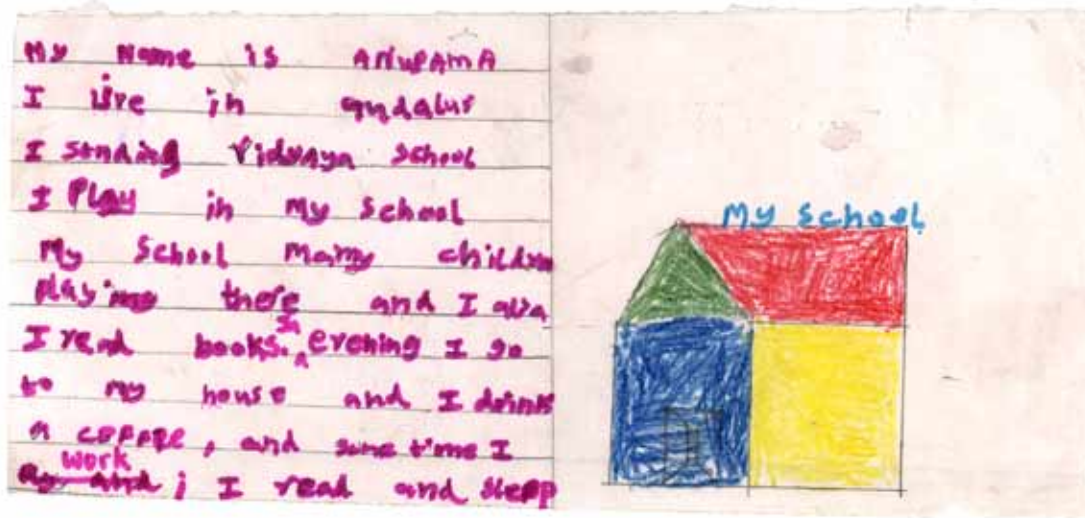 My Name is ANUPAMA
I live in gudalur
I stnding Vidyaya School
I Play in My School
My School many children
playing there and I also
I read books. In evening I go
to my house and I drink
a COFFEE, and some time I
work
and ; I read and sleep
My School